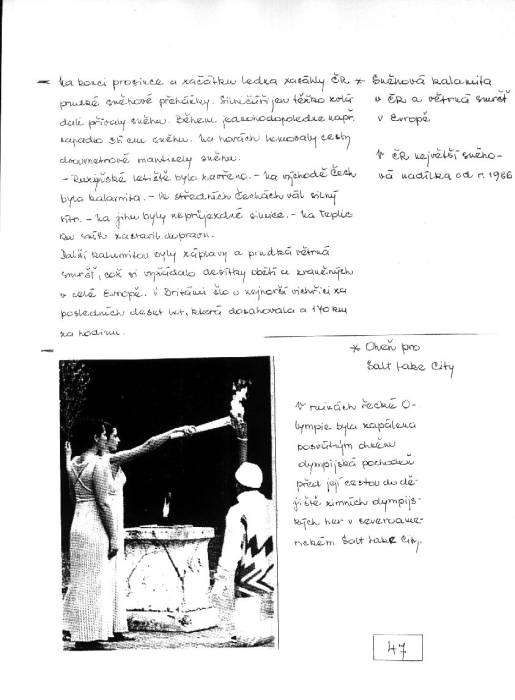 Na konci prosince a začátku ledna zasáhly ČR
prudké sněhové přeháňky. Silničáři jen těžko
další přívaly sněhu. Během jednoho dopoledne např.
napadlo cm sněhu. Na horách lemovaly cesty
dvoumetrové mantinely sněhu.
- Ruzyňské letiště bylo zavřeno. - Na východě Čech
byla kalamita. - Ve středních Čechách vál silný
vítr. - Na jihu byly neprůjezdné silnice. - Na Teplic
ku sníh zastavil dopravu.
Další kalamitou byly záplavy a prudká větrná
smršť, což si vyžádalo desítky obětí a zraněných
v celé Evropě. V Británii šlo o nejhorší vichřici za
posledních deset let, která dosahovala a 170 km
za hodinu.
* Sněhová kalamita
v ČR a větrná smršť
v Evropě
V ČR největší sněho-
vá nadílka od r. 1966
* Oheň pro
Salt Lake City
V ruinách řecké O-
lympie byla zapálena
posvátným ohněm
olympijská pochodeň
před její cestou do dě-
jiště zimních olympijs-
kých her v severoame-
rickém Salt Lake City.
47